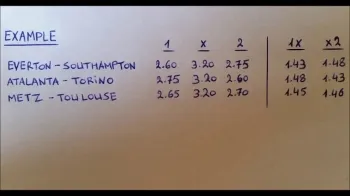 EXAMPLE 1 X 2 1X X2
EVERTON - SOUTHAMPTON 2.60 3.20 2.75 1.43 1.48
ATALANTA - TORINO 2.75 3.20 2.60 1.48 1.43
METZ - TOULOUSE 2.65 3.20 2.70 1.45 1.46